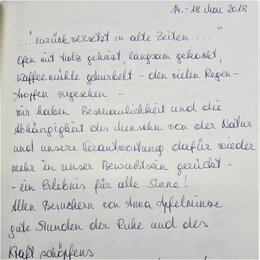 14.-18. Mai 2018
..."zurückversetzt in alte Zeiten..."
Ofen mit Holz geheizt, langsam gekocht,
Kaffeemühle gekurbelt - den vielen Regen-
tropfen zugesehen -
wir haben Beschaulichkeit und die
Abhängigkeit des Menschen von der Natur
und unsere Verantwortung dafür wieder
mehr in unser Bewußtsein gerückt -
- ein Erlebnis für alle Sinne!
Allen Besuchern von Anna Apfelminze
gute Stunden der Ruhe und des
Kraft schöpfens